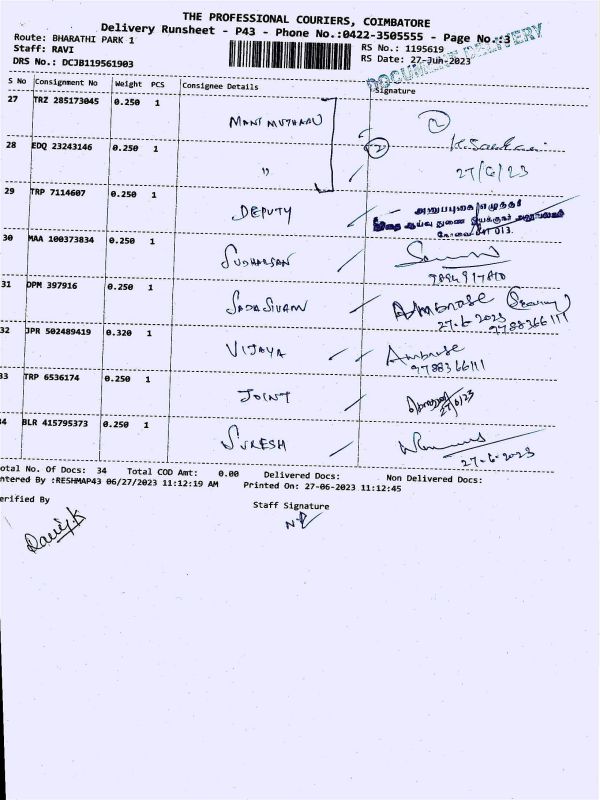 THE PROFESSIONAL COURIERS, COIMBATORE
Delivery Runsheet - P43 - Phone No.:0422-3505555 - Page No.:3
Route: BHARATHI PARK 1
RS No.: 1195619
Staff: RAVI
RS Date: 27-Jun-2023
DRS No.: DCJB119561903
DOCUMENT DELIVERY
S No Consignment No Weight PCS Consignee Details Signature
27 TRZ 285173045 0.250 1 MANI MUTHARU 2
28 EDQ 23243146 0.250 1 " 2
27/6/23
29 TRP 7114607 0.250 1 DEPUTY
30 MAA 100373834 0.250 1 SUDHARSAN
31 DPM 397916 0.250 1 SADASIVAM Ambrose
27.6.2023
9788366111
32 JPR 502489419 0.320 1 VIJAYA Ambrose
9788366111
33 TRP 6536174 0.250 1 JOINT
27/6/23
34 BLR 415795373 0.250 1 SURESH
27-6-2023
otal No. Of Docs: 34 Total COD Amt: 0.00 Delivered Docs: Non Delivered Docs:
ntered By :RESHMAP43 06/27/2023 11:12:19 AM Printed On: 27-06-2023 11:12:45
erified By
Staff Signature